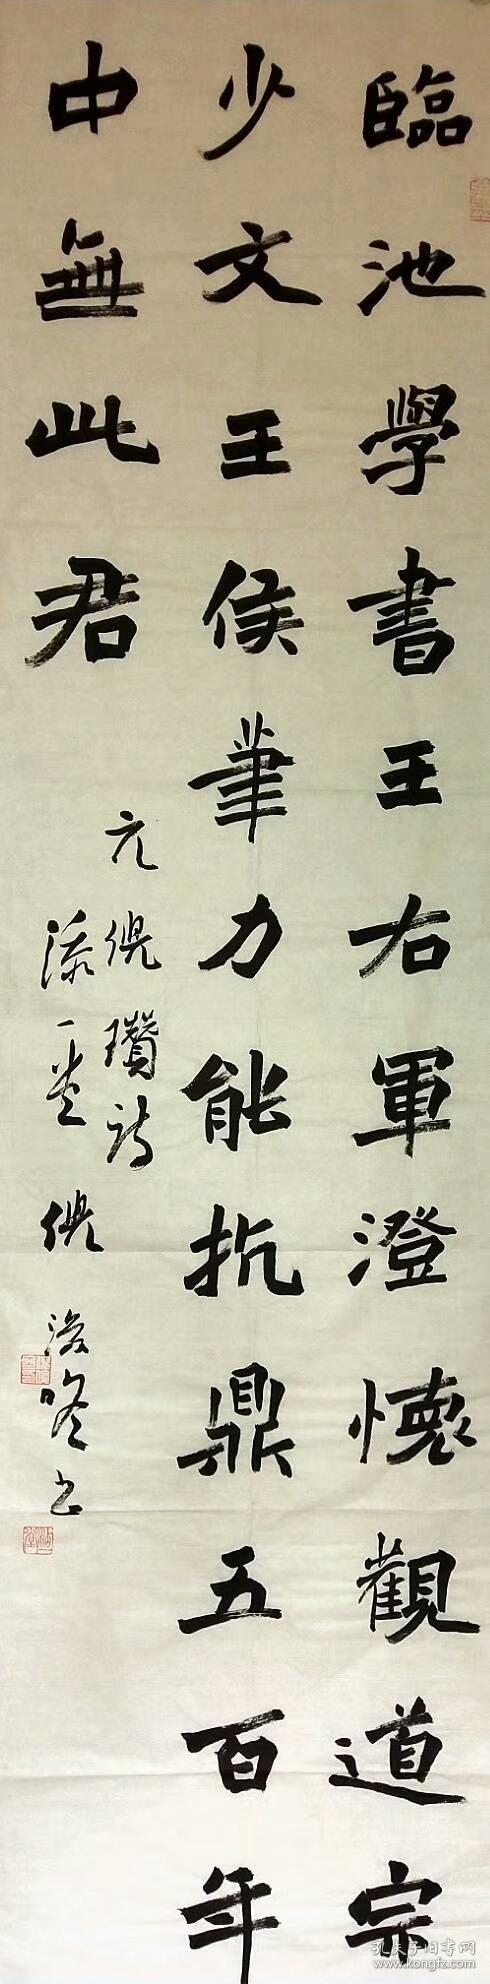 臨池學書王右軍澄懷觀道宗
少文王侯筆力能扛鼎五百年
中無此君
元倪瓚詩
倪
孔夫子旧书网
www.kongfz.com